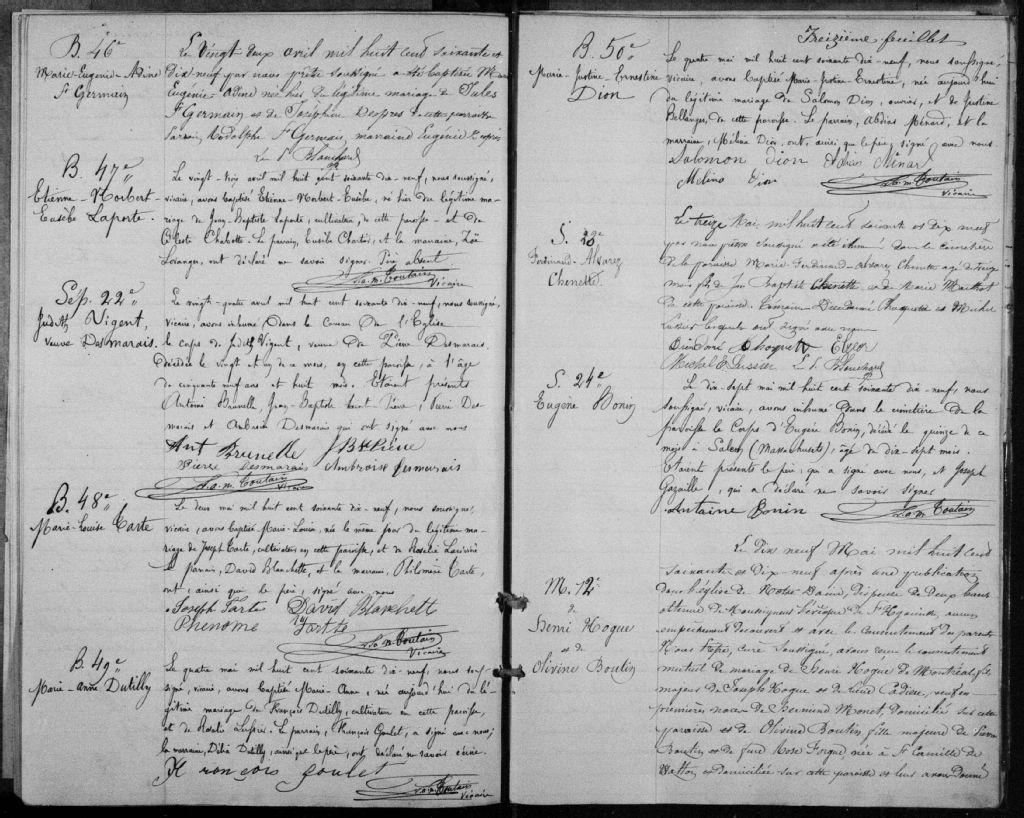 B. 46e
Marie-Eugénie-Adine
St Germain
Le Vingt deux avril mil huit cent soixante et
Dix neuf par nous prêtre soussigné a été Baptisée M.
Eugénie-Adine née hier du légitime mariage de Jules
St Germain et de Joséphine Despres de cette paroisse
Parrain Rodolphe St Germain, marraine Eugénie Després
B. 47e
Etienne-Norbert-
Eusèbe Laporte.
Le vingt-trois avril mil huit cent soixante dix-neuf, nous soussigné,
vicaire, avons baptisé Etienne-Norbert-Eusèbe, né hier du légitime ma-
riage de Jean-Baptiste Laporte, cultivateur, de cette paroisse et de
Céleste Chabotte. Le parrain, Eusèbe Chartier, et la marraine, Zoé
ont déclaré ne savoir signer. Père absent
Vicaire
Sep. 22e
Judith Vigent,
veuve Desmarais.
Le vingt-quatre avril mil huit cent soixante dix-neuf, nous soussigné,
vicaire, avons inhumé dans le caveau de l'Eglise
le corps de Judith Vigent, veuve de Pierre Desmarais.
Décédée le vingt et un de ce mois, en cette paroisse, à l'âge
de cinquante neuf ans et huit mois. Etaient présents
Antoine Brunelle, Jean-Baptiste Saint-Pierre, Pierre Des-
marais et Ambroise Desmarais qui ont signé avec nous
Ant Brunelle J Bte Pierre
Pierre Desmarais Ambroise Desmarais
Vicaire
B. 48e
Marie-Louise Tarte
Le deux mai mil huit cent soixante dix-neuf, nous soussigné,
vicaire, avons baptisé Marie-Louise, née le même jour du légitime ma-
riage de Joseph Tarte, cultivateur en cette paroisse, et de Rosalie Larivière
Le parrain, David Blanchette, et la marraine, Philomène Tarte,
ont, ainsi que le père, signé avec nous
Joseph Tarte David Blanchett
Phenome Tartte
Vicaire
B. 49e
Marie-Anne Dutilly
Le quatre mai mil huit cent soixante dix-neuf, nous sous-
signé, vicaire, avons baptisé Marie-Anne, née aujourd'hui du lé-
gitime mariage de François Dutilly, cultivateur en cette paroisse,
et de Rosalie. Le parrain, François Goulet, a signé avec nous;
la marraine, Délia Dutilly, ainsi que le père, ont déclaré ne savoir écrire.
François Goulet
Vicaire
Treizième feuillet
B. 50e
Marie-Justine-Ernestine
Dion
Le quatre mai mil huit cent soixante dix-neuf, nous soussigné,
vicaire, avons baptisé Marie-Justine-Ernestine, née aujourd'hui
du légitime mariage de Salomon Dion, ouvrier, et de Justine
Bellanger, de cette paroisse. Le parrain, Abdias Ménard, et la
marraine, Mélina Dion, ont, ainsi que le père, signé avec nous.
Salomon Dion Abdias Ménard
Melina Dion
Vicaire
S.
Ferdinand-Alvarez
Chenette
Le treize Mai mil huit cent soixante et dix neuf
par nous prêtre soussigné a été inhumé dans le cimetière
de la paroisse Marie-Ferdinand-Alvarez Chenette agé de treize
mois fils de Jean Baptiste Chenette et de Marie Mailhot
de cette paroisse. Témoins Dieudonné Choquette et Michel
Lussier lesquels ont signé avec nous
Dieudonné Choquette
Michel Lussier
S. 24e
Eugène Bonin
Le dix-sept mai mil huit cent soixante dix-neuf, nous
soussigné, vicaire, avons inhumé dans le cimetière de la
paroisse le Corps d'Eugène Bonin, décédé le quinze de ce
mois à Salem (Massachusets), âgé de dix-sept mois.
Etaient présents le père, qui a signé avec nous, et Joseph
Gazaille, qui a déclaré ne savoir signer
Antaine Bonin
Vicaire
M. 12e
de
Henri Hogue
et de
Olivine Boutin
Le Dix neuf Mai mil huit cent
soixante et Dix-neuf après une publication
dans l'église de Notre Dame, dispense de Deux bans
obtenue de Monseigneur l'évêque de St Hyacinthe, aucun
empêchement découvert et avec le consentement des parents
Nous prêtre, curé soussigné, avons reçu le consentement
mutuel de mariage de Henri Hogue de Montréal fils
majeur de Joseph Hogue et de Cadieux, veuf en
premières noces de Monet, domicilié sur cette
paroisse et de Olivine Boutin fille majeure de Pierre
Boutin et de feue Rose Forgue, née à St Camille de
Wotton et domiciliée sur cette paroisse et leur avons donné